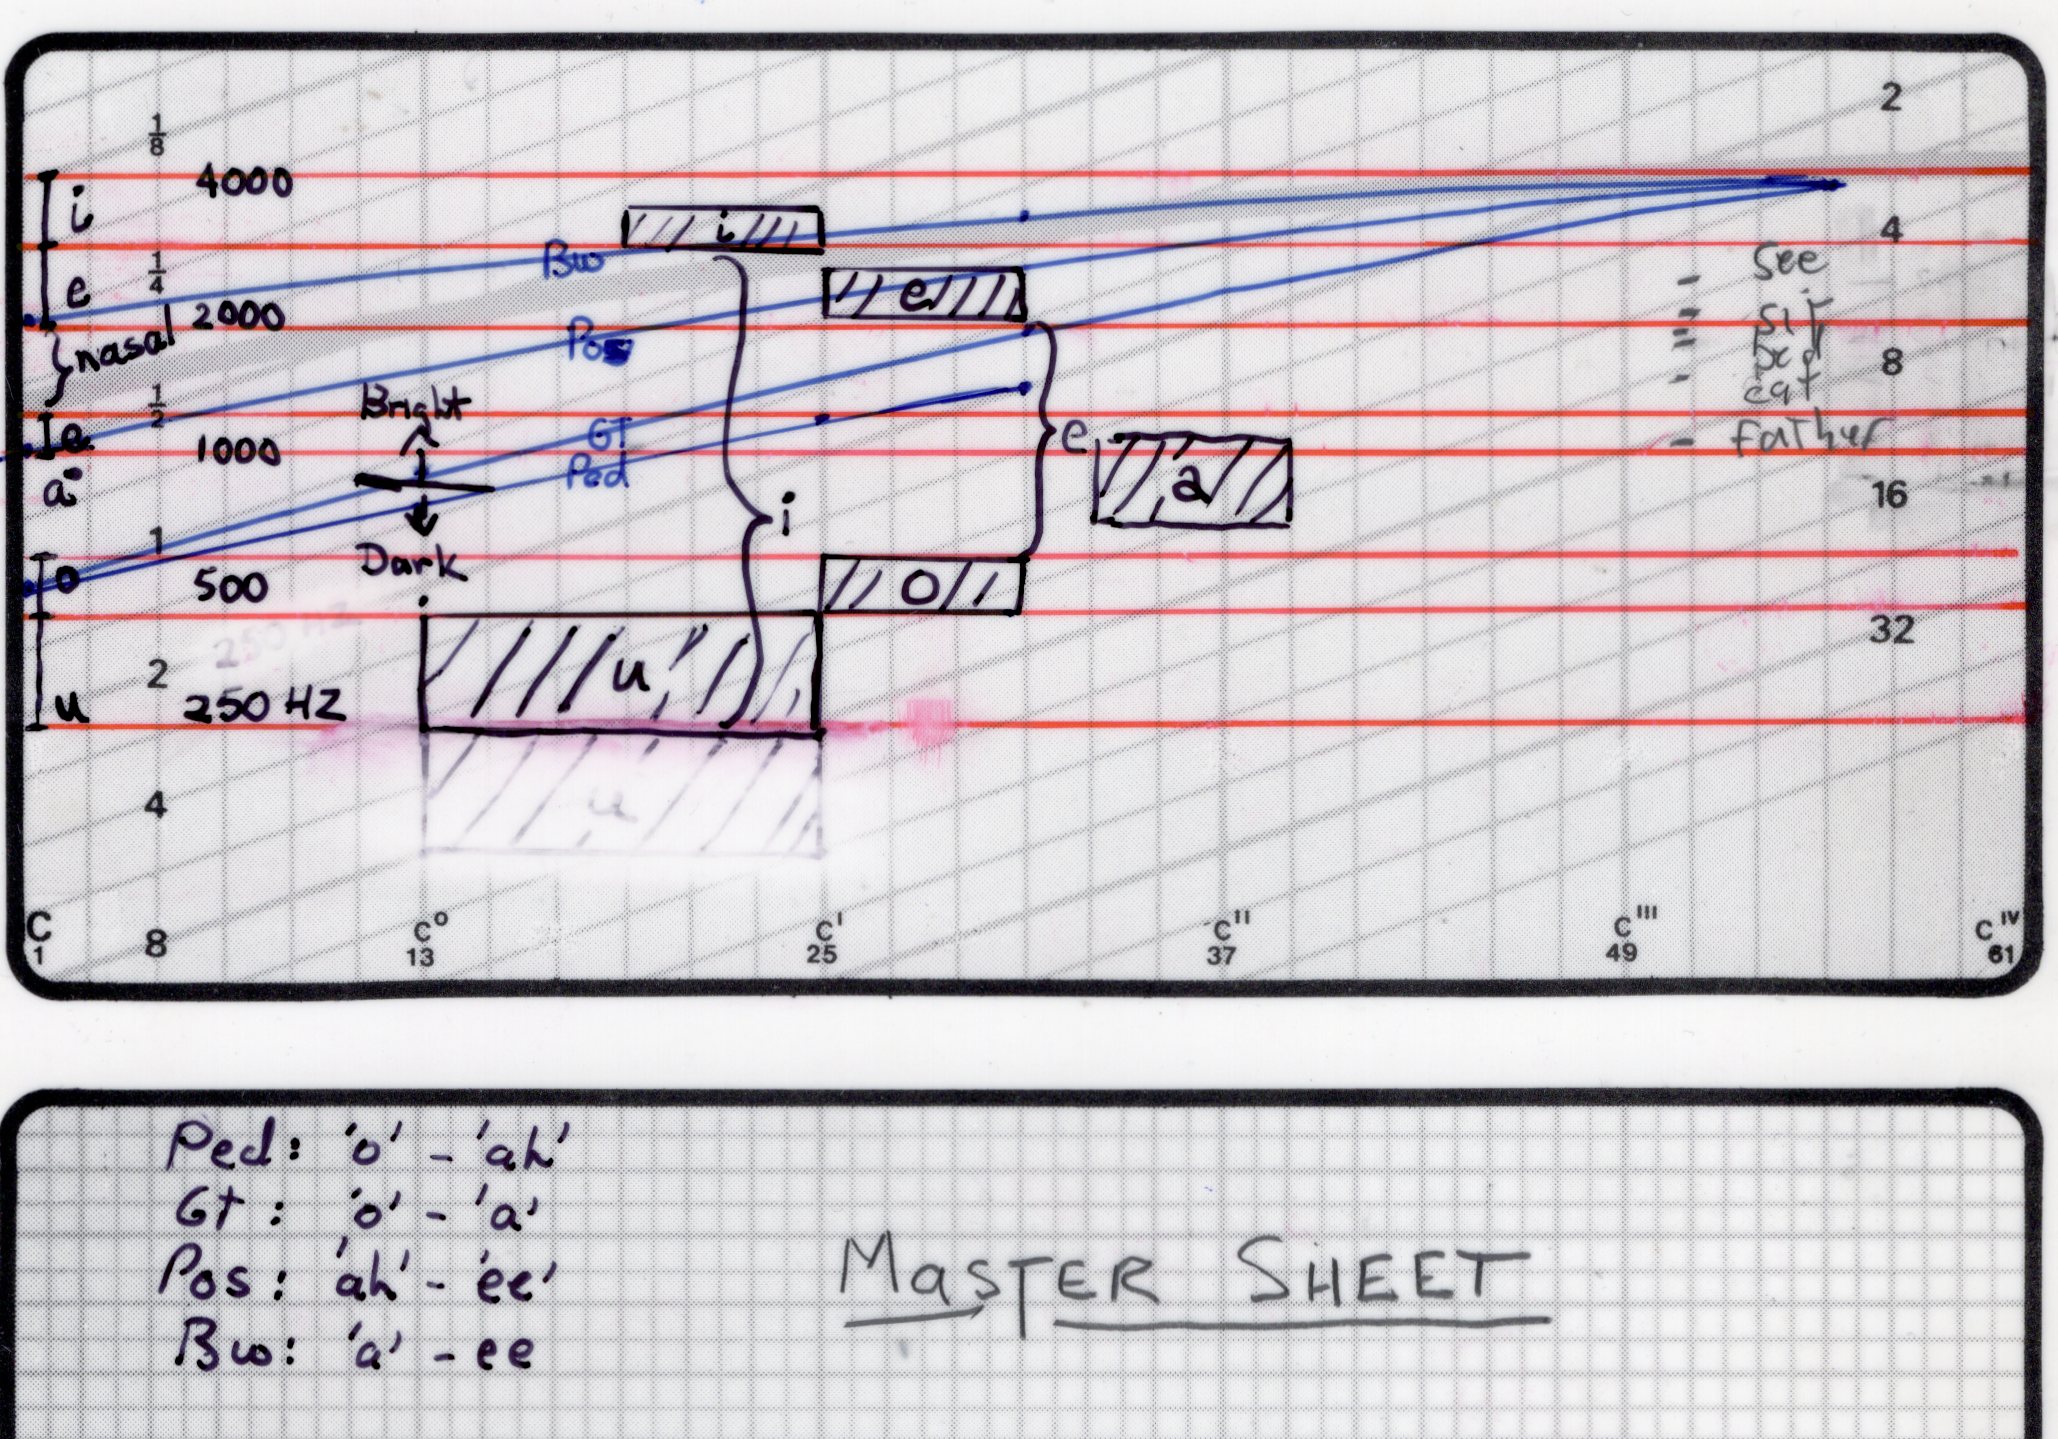 2
1/8
i 4000
4
See
e 1/4 2000
Bw
i
e
sit
nasal
Pos
8
eat
Bright
1/2
e 1000
GT
e
Father
a
Ped
a
16
1
Dark
i
o 500
o
32
250 HZ
2
u
u 250 HZ
u
4
C 8 C° C' C'' C''' C IV
1 13 25 37 49 61
Ped: 'o' - 'ah'
Gt: 'o' - 'a'
Pos: 'ah' - 'ee'
Bw: 'a' - ee
MASTER SHEET